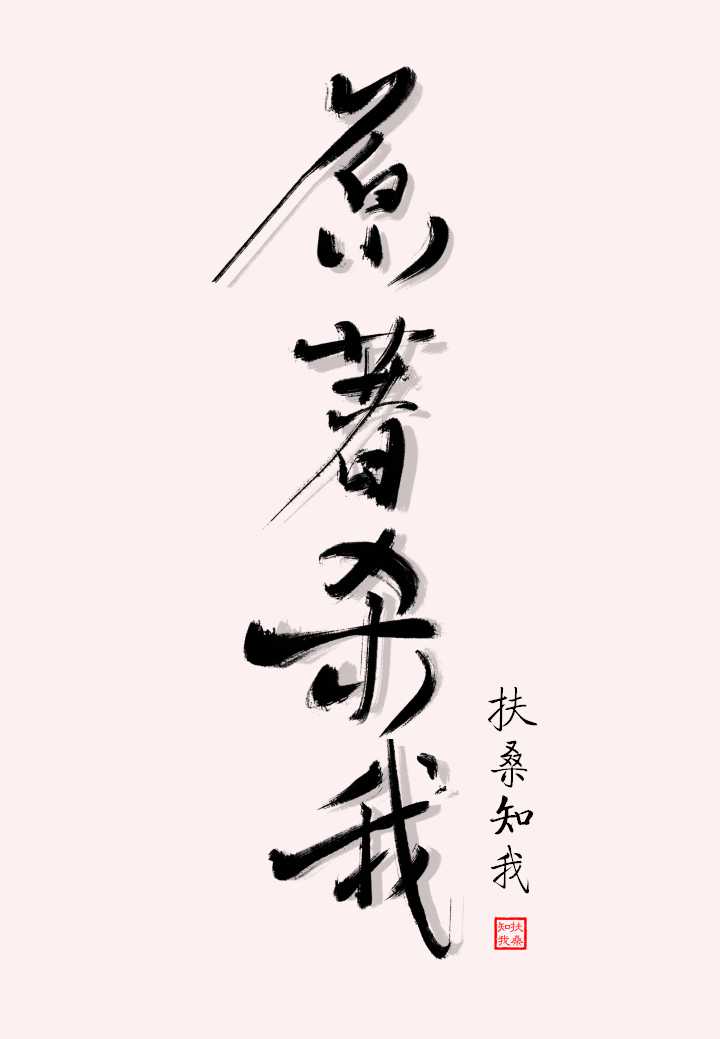 原著杀我
扶桑知我
扶桑
知我